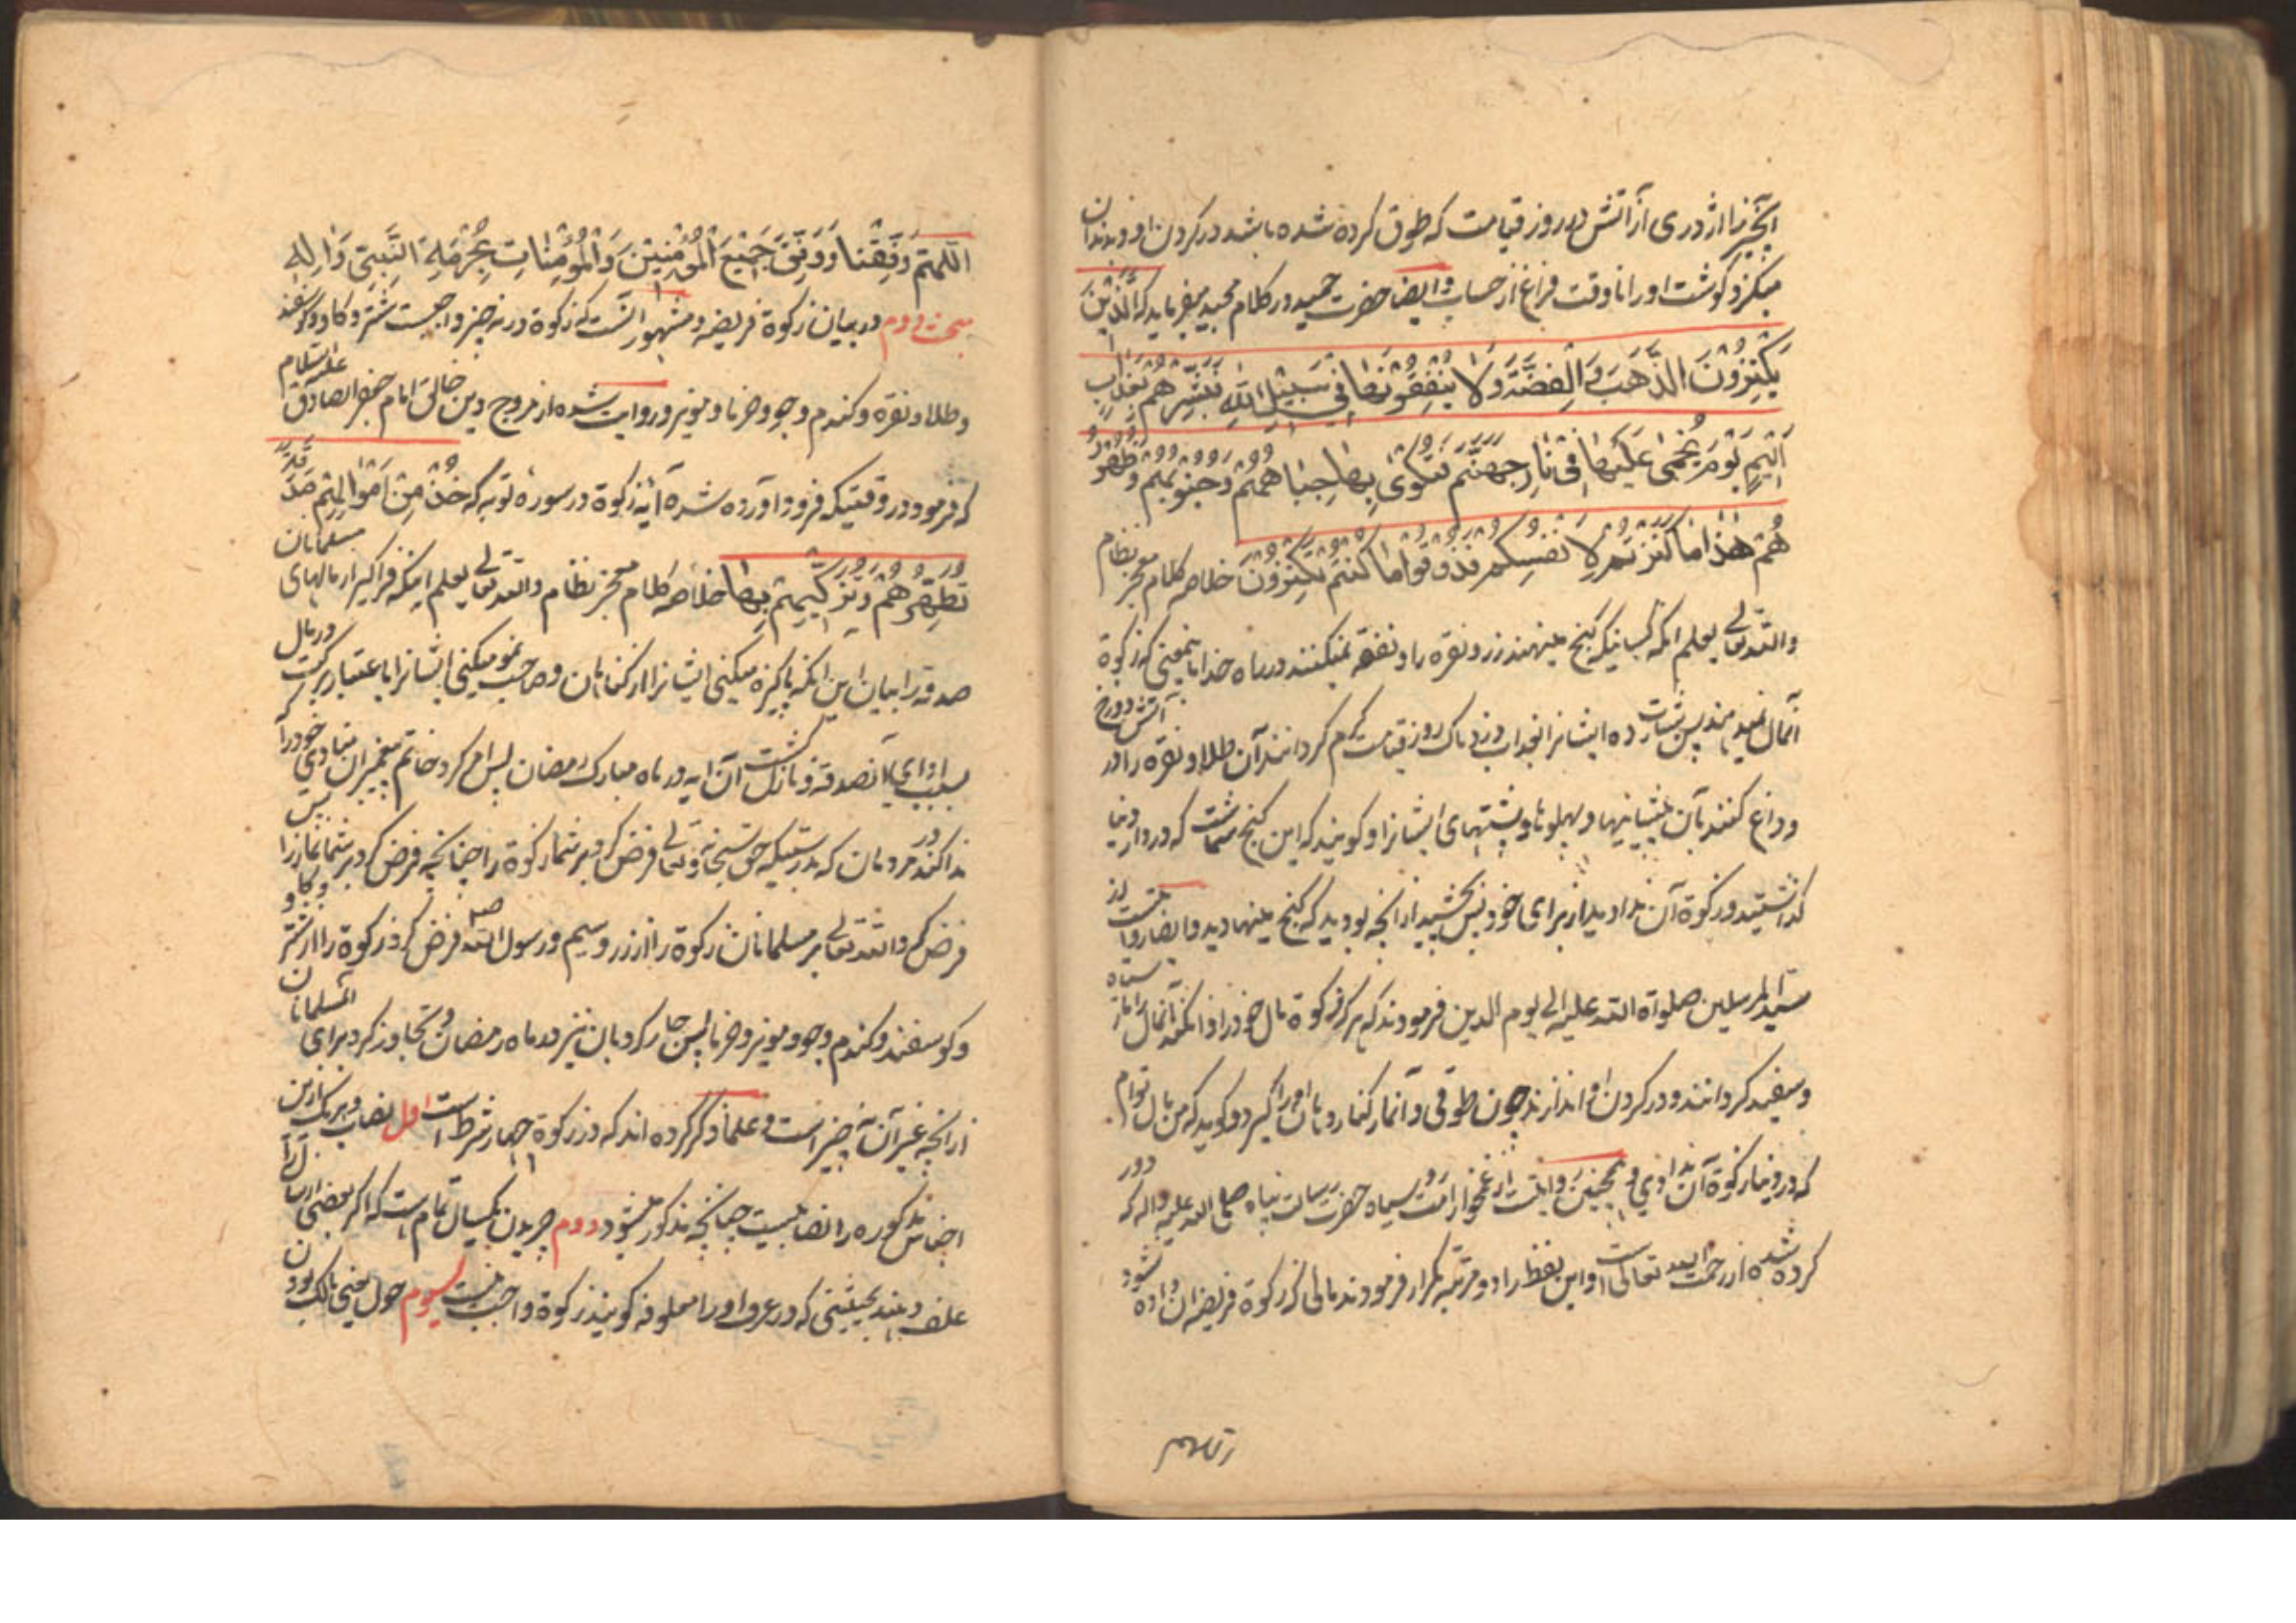 آنچیز را اژدری از آتش در روز قیامت که طوق کرده شده باشد در کردن او و بدندان
میکزد کوشت او را تا وقت فراغ از حساب وایضا حضرت حمید در کلام مجید میفرماید که اَلَّذینَ
یَکْنِزُونَ الذَّهَبَ وَالْفِضَّةَ وَلا یُنْفِقُونَها فی سَبیْلِ اللّهِ فَبَشِّرْهُمْ بِعَذابٍ
اَلیْمٍ یَوْمَ یُحْمٰی عَلَیْها فی نارِ جَهَنَّمَ فَتُکْوٰی بِها جِباهُهُمْ وَجُنُوبُهُمْ وَظُهُورُ
هُمْ هٰذا ما کَنَزْتُمْ لِاَنْفُسِکُمْ فَذُوقُوا ما کُنْتُمْ تَکْنِزُونَ خلاصه کلام معجز نظام
والله تعالی یعلم انکه کسانیکه کنج مینهند زر و نقره را و نفقه نمیکنند در راه خدا باینمعنی که زکوة
آنمال نمیدهند پس بشارت ده ایشانرا بعذاب دردناک روز قیامت کرم کردانند آن طلا و نقره را در آتش دوزخ
و داغ کنند بآن پیشانیها و پهلوها و پشتهای ایشانرا و کویند که این کنج شماست که در دار دنیا
کذاشتید و زکوة آن ندادید از برای خود پس بچشید از آنچه بودید که کنج مینهادید وایضا روایتست از
سید المرسلین صلواة الله علیه الی یوم الدین فرمودند که هرکه زکوة مال خود را ندهد آنمال را مار سیاه
و سفید کردانند و در کردن او اندازند چون طوقی و آنمار کنار دهان او را کیرد و کوید که من مال توام
که در دنیا زکوة آن ندادی و همچنین روایتست از غمخوار امت سیاه حضرت رسالت پناه صلی الله علیه واله که دور
کرده شده از رحمت ایزد تعالی است و این لفظ را دو مرتبه تکرار فرمودند مالی که زکوة فریضه آن داده نشود
اَللّهُمَّ وَفِّقْنا وَوَفِّقْ جَمیْعَ الْمُؤْمِنیْنَ وَالْمُؤْمِناتِ بِحُرْمَةِ النَّبِیِّ وَالِهِ
مبحث دوم در بیان زکوة فریضه و مشهور آنست که زکوة در نه چیز واجبست شتر و کاو و کوسفند
و طلا و نقره و کندم و جو و خرما و مویز و روایت شده از مروج دین خالق امام جعفر الصادق علیه السلام
که فرمود در وقتیکه فرود آورده شد آیهٔ زکوة در سورهٔ توبه که خُذْ مِنْ اَمْوالِهِمْ صَدَقَةً
تُطَهِّرُهُمْ وَتُزَکِّیهِمْ بِها خلاصه کلام معجز نظام والله تعالی یعلم اینکه فراکیر از مالهای مسلمانان
صدقه را بیان این انکه پاکیزه میکنی ایشانرا از کناهان و صاحب نمو میکنی ایشانرا باعتبار برکت در مال
بسبب ادای آنصدقه و نازل کشت آن ایه در ماه مبارک رمضان پس امر کرد خاتم پیغمبران منادی خود را که
ندا کند در مردمان که بدرستیکه حق سبحانه و تعالی فرض کرد بر شما زکوة را چنانچه فرض کرد بر شما نماز را پس
فرض کرد الله تعالی بر مسلمانان زکوة را از زر و سیم و رسول الله صلعم فرض کرد زکوة را از شتر و کاو
و کوسفند و کندم و جو و مویز و خرما پس جار کرد بآن نیز در ماه رمضان و تجاوز کرد برای مسلمانان
از آنچه غیر آن نه چیز است و علما ذکر کرده اند که در زکوة چهار شرط است اول نصاب و هریک ازین
اجناس مذکوره را نصابیست چنانچه مذکور میشود دوم چریدن یکسال تمام است که اکر بعضی از سال آنرا
علف دهند بحیثیتی که در عرف او را معلوفه کویند زکوة واجب نیست سیوم حول یعنی مالک بودن